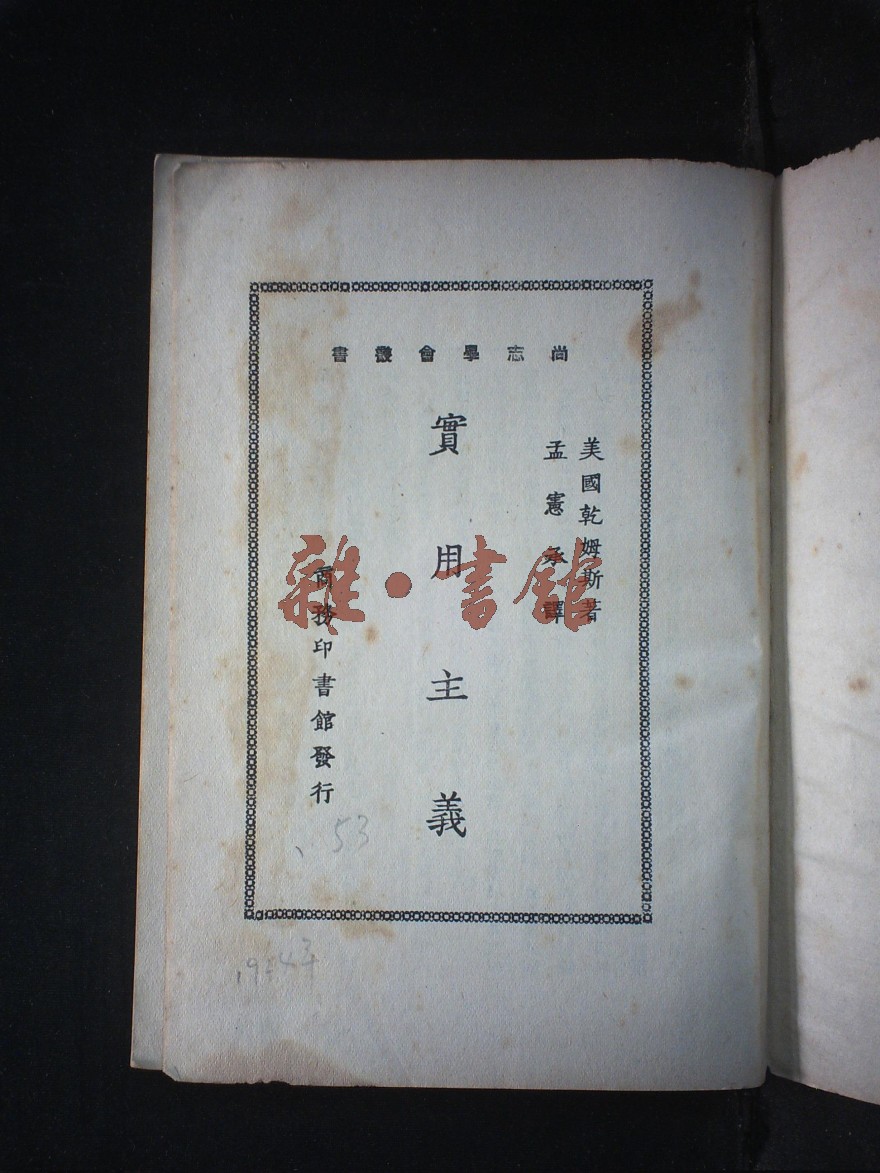 尚志學會叢書
美國乾姆斯著
孟憲承譯
實用主義
商務印書館發行
雜·書館
53